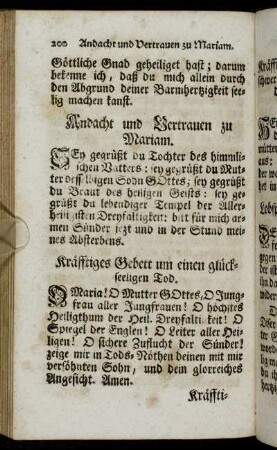 200 Andacht und Vertrauen zu Mariam.
Göttliche Gnad geheiliget hast; darum
bekenne ich, daß du mich allein durch
den Abgrund deiner Barmhertzigkeit see-
lig machen kanst.
Andacht und Vertrauen zu
Mariam.
SEy gegrüßt du Tochter des himmli-
schen Vatters: sey gegrüßt du Mut-
ter desselbigen Sohn GOttes; sey gegrüßt
du Braut des heiligen Geists: sey ge-
grüßt du lebendiger Tempel der Aller-
heiligsten Dreyfaltigkeit: bitt für mich armen
Sünder jetzt und in der Stund mei-
nes Absterbens.
Kräfftiges Gebett um einen glück-
seeligen Tod.
O Maria! O Mutter GOttes, O Jung-
frau aller Jungfrauen! O höchstes
Heiligthum der Heil. Dreyfaltigkeit! O
Spiegel der Englen! O Leiter aller Hei-
ligen! O sichere Zuflucht der Sünder!
zeige mir in Tods-Nöthen deinen mit mir
versöhnten Sohn, und dem glorreiches
Angesicht. Amen.
Kräffti-